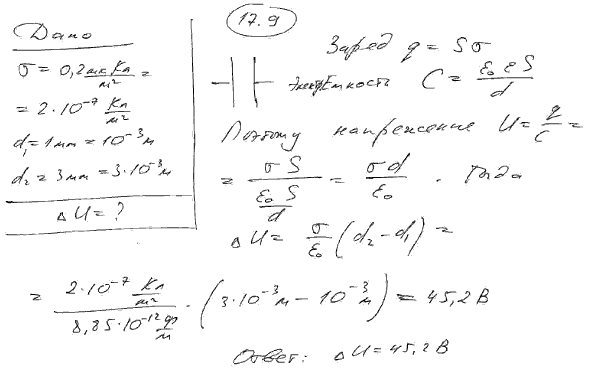 17.9
Дано
σ = 0,2 мкКл/м² =
= 2·10⁻⁷ Кл/м²
d₁ = 1мм = 10⁻³м
d₂ = 3мм = 3·10⁻³м
ΔU = ?
Заряд q = Sσ
Электроёмкость C = ε₀εS/d
Поэтому напряжение U = q/C =
= σS/(ε₀S/d) = σd/ε₀ . Тогда
ΔU = σ/ε₀ (d₂ − d₁) =
= (2·10⁻⁷ Кл/м²)/(8,85·10⁻¹² Ф/м) · (3·10⁻³м − 10⁻³м) = 45,2 В
Ответ: ΔU = 45,2 В